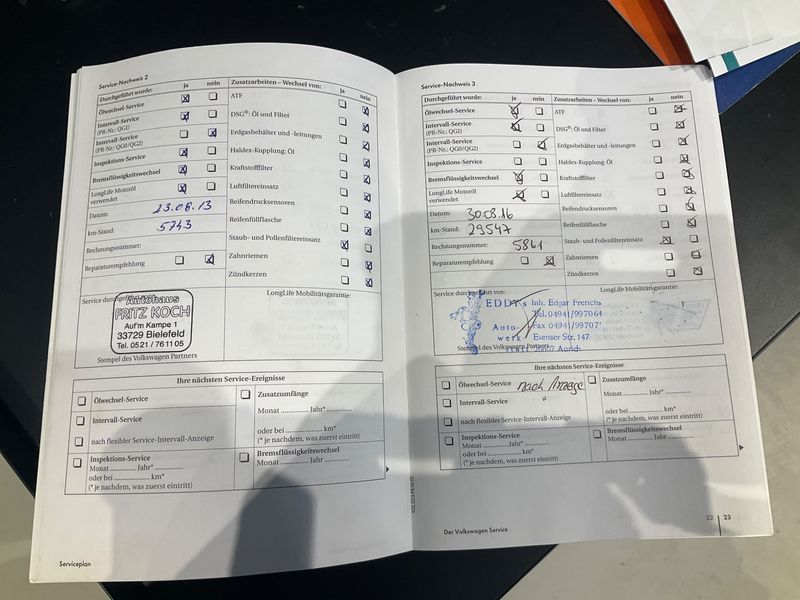 Service-Nachweis 2
Durchgeführt wurde: ja nein
Ölwechsel-Service
Intervall-Service
(PR-Nr.: QG1)
Intervall-Service
(PR-Nr.: QG0/QG2)
Inspektions-Service
Bremsflüssigkeitswechsel
LongLife Motoröl
verwendet
Datum: 23.08.13
km-Stand: 5743
Rechnungsnummer:
Reparaturempfehlung
Zusatzarbeiten – Wechsel von: ja nein
ATF
DSG®: Öl und Filter
Erdgasbehälter und -leitungen
Haldex-Kupplung: Öl
Kraftstofffilter
Luftfiltereinsatz
Reifendrucksensoren
Reifenfüllflasche
Staub- und Pollenfiltereinsatz
Zahnriemen
Zündkerzen
Service durchgeführt von:
Autohaus
FRITZ KOCH
Auf'm Kampe 1
33729 Bielefeld
Tel. 05 21 / 76 11 05
Stempel des Volkswagen Partners
LongLife Mobilitätsgarantie:
Ihre nächsten Service-Ereignisse
Ölwechsel-Service
Intervall-Service
nach flexibler Service-Intervall-Anzeige
Inspektions-Service
Monat ............ Jahr* ..............
oder bei ...................... km*
(* je nachdem, was zuerst eintritt)
Zusatzumfänge
Monat ............ Jahr* ............
oder bei ...................... km*
(* je nachdem, was zuerst eintritt)
Bremsflüssigkeitswechsel
Monat ............ Jahr ............
Serviceplan
Service-Nachweis 3
Durchgeführt wurde: ja nein
Ölwechsel-Service
Intervall-Service
(PR-Nr.: QG1)
Intervall-Service
(PR-Nr.: QG0/QG2)
Inspektions-Service
Bremsflüssigkeitswechsel
LongLife Motoröl
verwendet
Datum: 30.08.16
km-Stand: 29547
Rechnungsnummer: 5861
Reparaturempfehlung
Zusatzarbeiten – Wechsel von: ja nein
ATF
DSG®: Öl und Filter
Erdgasbehälter und -leitungen
Haldex-Kupplung: Öl
Kraftstofffilter
Luftfiltereinsatz
Reifendrucksensoren
Reifenfüllflasche
Staub- und Pollenfiltereinsatz
Zahnriemen
Zündkerzen
Service durchgeführt von:
EDDY's Inh. Edgar Frerichs
Tel. 04941/997064
Auto- Fax 04941/99707
werk Esenser Str. 147
Aurich
Stempel des Volkswagen Partners
LongLife Mobilitätsgarantie:
Ihre nächsten Service-Ereignisse
Ölwechsel-Service nach Anzeige
Intervall-Service "
nach flexibler Service-Intervall-Anzeige
Inspektions-Service
Monat ............ Jahr* ............
oder bei ...................... km*
(* je nachdem, was zuerst eintritt)
Zusatzumfänge
Monat ............ Jahr* ............
oder bei ...................... km*
(* je nachdem, was zuerst eintritt)
Bremsflüssigkeitswechsel
Monat ............ Jahr ............
Der Volkswagen Service
22 23